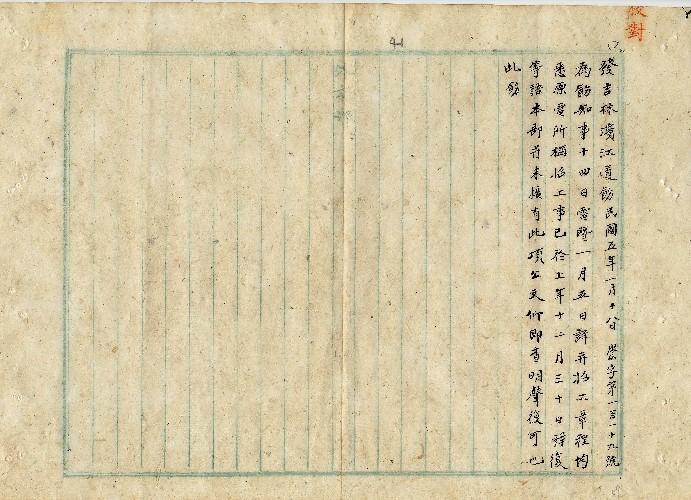 校對
41
發吉林濱江道飭 民國五年一月十八日 界字第一百一十九號
為飭知事十四日電暨一月五日詳并招工章程均
悉原電所稱招工事已於上年十二月三十日詳復
等語本部并未接有此項公文仰即查明聲復可也
此飭